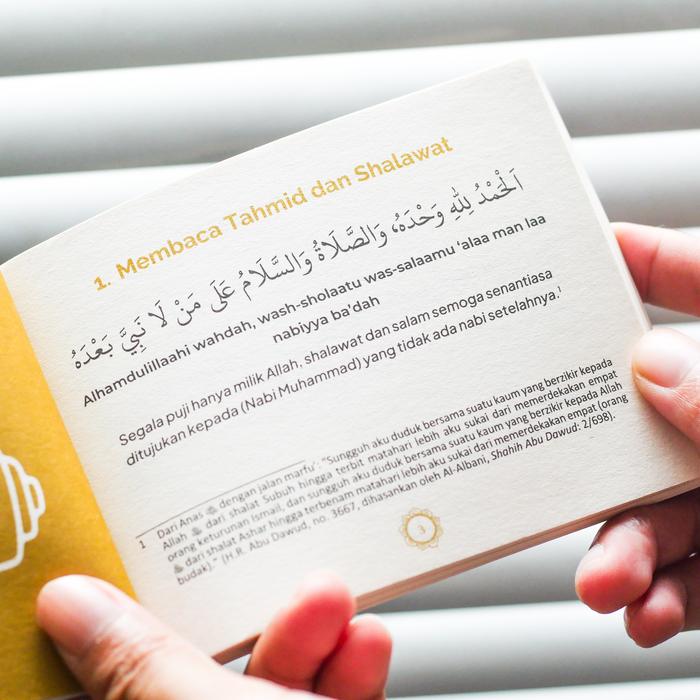 1. Membaca Tahmid dan Shalawat
اَلْحَمْدُ لِلّٰهِ وَحْدَهُ، وَالصَّلَاةُ وَالسَّلَامُ عَلَى مَنْ لَا نَبِيَّ بَعْدَهُ
Alhamdulillaahi wahdah, wash-sholaatu was-salaamu ‘alaa man laa
nabiyya ba’dah
Segala puji hanya milik Allah, shalawat dan salam semoga senantiasa
ditujukan kepada (Nabi Muhammad) yang tidak ada nabi setelahnya.¹
1 Dari Anas dengan jalan marfu’: “Sungguh aku duduk bersama suatu kaum yang berzikir kepada
Allah ﷻ dari shalat Subuh hingga terbit matahari lebih aku sukai dari memerdekakan empat
orang keturunan Ismail, dan sungguh aku duduk bersama suatu kaum yang berzikir kepada Allah
ﷻ dari shalat Ashar hingga terbenam matahari lebih aku sukai dari memerdekakan empat (orang
budak).” (H.R. Abu Dawud, no. 3667, dihasankan oleh Al-Albani, Shahih Abu Dawud: 2/698).
3